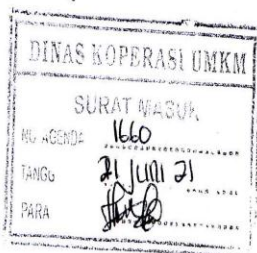 DINAS KOPERASI UMKM
SURAT MASUK
NO AGENDA 1660
TANGG 21 JUNI 21
PARA